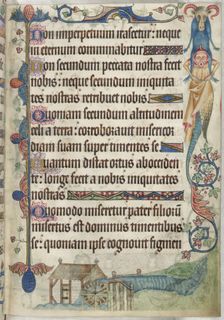 Non imperpetuum irascetur: neque
in eternum comminabitur
Non secundum peccata nostra fecit
nobis: neque secundum iniquita
tes nostras retribuit nobis
Quoniam secundum altitudinem
celi a terra: corroboravit misericor
diam suam super timentes se
Quantum distat ortus ab occiden
te: longe fecit a nobis iniquitates
nostras
Quomodo miseretur pater filiorum
misertus est dominus timentibus
se: quoniam ipse cognovit figmen